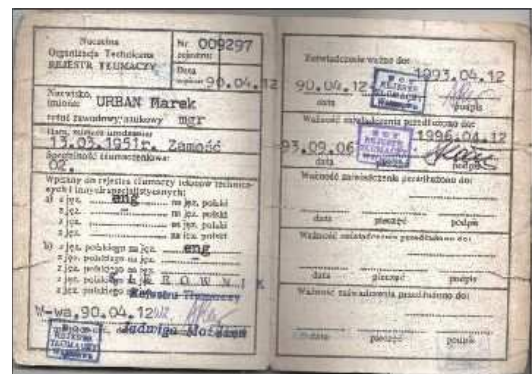 Naczelna
Organizacja Techniczna
REJESTR TŁUMACZY
Nr 009297
rejestru
Data
wpisu 90.04.12
Nazwisko,
imiona URBAN Marek
tytuł zawodowy, naukowy mgr
Data, miejsce urodzenia
13.03.1951r. Zamość
Specjalność tłumaczeniowa:
02.
Wpisany do rejestru tłumaczy tekstów technicz-
nych i innych specjalistycznych:
a) z jęz. eng na jęz. polski
z jęz. — na jęz. polski
z jęz. na jęz. polski
z jęz. na jęz. polski
b) z jęz. polskiego na jęz. eng
z jęz. polskiego na jęz. —
z jęz. polskiego na jęz.
z jęz. polskiego
KIEROWNIK
Rejestru Tłumaczy
W-wa, 90.04.12
Jadwiga
REJESTR
TŁUMACZY
Zaświadczenie ważne do:
1993.04.12
90.04.12
NOT
REJESTR
TŁUMACZY
data podpis
Ważność zaświadczenia przedłużono do:
1996.04.12
93.09.06
NOT
REJESTR
TŁUMACZY
data podpis
Ważność zaświadczenia przedłużono do:
data pieczęć podpis
Ważność zaświadczenia przedłużono do:
data pieczęć podpis
Ważność zaświadczenia przedłużono do:
data pieczęć podpis